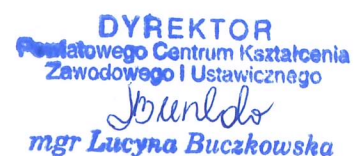 DYREKTOR
Powiatowego Centrum Kształcenia
Zawodowego I Ustawicznego
mgr Lucyna Buczkowska